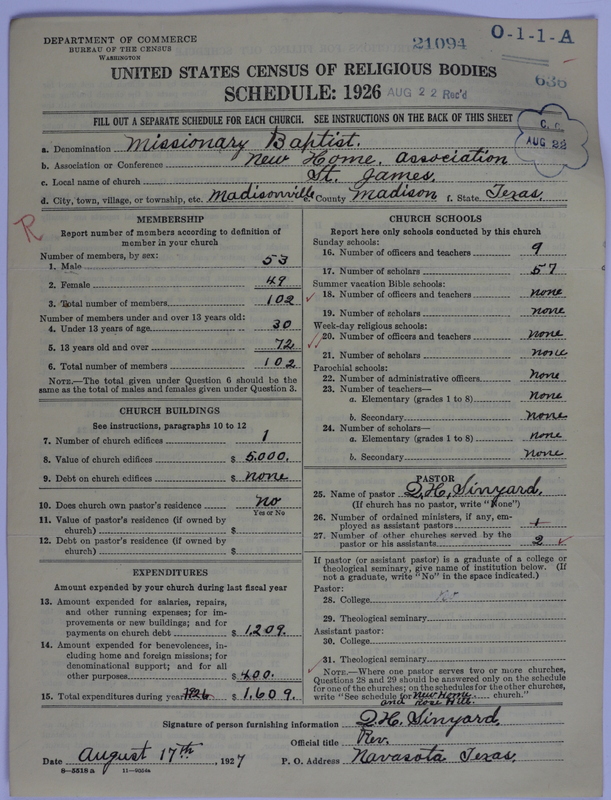 DEPARTMENT OF COMMERCE
BUREAU OF THE CENSUS
WASHINGTON
21094
O-1-1-A
636
UNITED STATES CENSUS OF RELIGIOUS BODIES
SCHEDULE: 1926
AUG 22 Rec'd
FILL OUT A SEPARATE SCHEDULE FOR EACH CHURCH. SEE INSTRUCTIONS ON THE BACK OF THIS SHEET
AUG 22
a. Denomination Missionary Baptist.
b. Association or Conference New Home. Association
c. Local name of church St. James.
d. City, town, village, or township, etc. Madisonville e. County Madison f. State Texas.
R
MEMBERSHIP
Report number of members according to definition of
member in your church
Number of members, by sex:
1. Male 53
2. Female 49
3. Total number of members 102
Number of members under and over 13 years old:
4. Under 13 years of age 30
5. 13 years old and over 72
6. Total number of members 102
NOTE.—The total given under Question 6 should be the
same as the total of males and females given under Question 3.
CHURCH BUILDINGS
See instructions, paragraphs 10 to 12
7. Number of church edifices 1
8. Value of church edifices $ 5,000.
9. Debt on church edifices $ none
10. Does church own pastor's residence no
Yes or No
11. Value of pastor's residence (if owned by
church) $
12. Debt on pastor's residence (if owned by
church) $
EXPENDITURES
Amount expended by your church during last fiscal year
13. Amount expended for salaries, repairs,
and other running expenses; for im-
provements or new buildings; and for
payments on church debt $ 1,209.
14. Amount expended for benevolences, in-
cluding home and foreign missions; for
denominational support; and for all
other purposes $ 400.
15. Total expenditures during year 1926 $ 1,609.
CHURCH SCHOOLS
Report here only schools conducted by this church
Sunday schools:
16. Number of officers and teachers 9
17. Number of scholars 57
Summer vacation Bible schools:
18. Number of officers and teachers none
19. Number of scholars none
Week-day religious schools:
20. Number of officers and teachers none
21. Number of scholars none
Parochial schools:
22. Number of administrative officers none
23. Number of teachers—
a. Elementary (grades 1 to 8) none
b. Secondary none
24. Number of scholars—
a. Elementary (grades 1 to 8) none
b. Secondary none
PASTOR
25. Name of pastor Q.H. Sinyard.
(If church has no pastor, write "None")
26. Number of ordained ministers, if any, em-
ployed as assistant pastors 1
27. Number of other churches served by the
pastor or his assistants 2
If pastor (or assistant pastor) is a graduate of a college or
theological seminary, give name of institution below. (If
not a graduate, write "No" in the space indicated.)
Pastor:
28. College no
29. Theological seminary
Assistant pastor:
30. College
31. Theological seminary
NOTE.—Where one pastor serves two or more churches,
Questions 28 and 29 should be answered only on the schedule
for one of the churches; on the schedules for the other churches,
write "See schedule for New Home church."
and Rose Hill.
Signature of person furnishing information Q.H. Sinyard.
Official title Rev.
Date August 17th, 1927 P. O. Address Navasota Texas.
8—5518 a 11—9554a